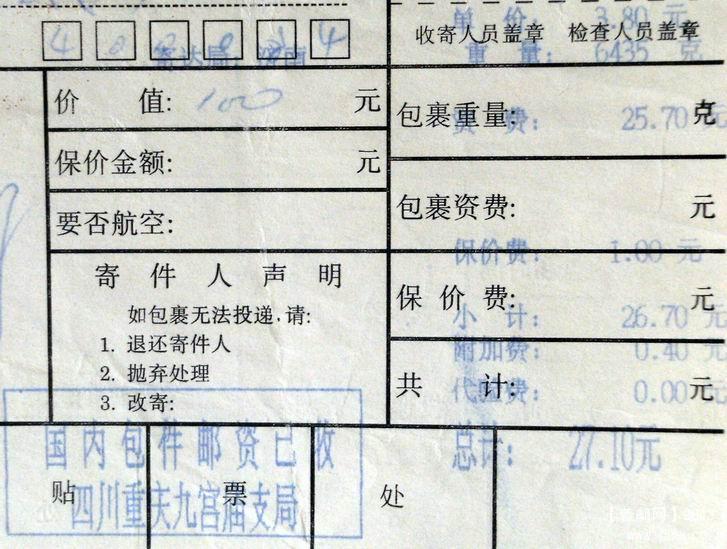 单 价: 3.80 元
收寄人员盖章 检查人员盖章
寄达局: 济南
重 量: 6435 克
价 值: 100 元
包裹重量: 克
资 费: 25.70 元
保价金额: 元
包裹资费: 元
要否航空:
保价费: 1.00 元
寄 件 人 声 明
保 价 费: 元
如包裹无法投递,请:
小 计: 26.70 元
1. 退还寄件人
附加费: 0.40 元
2. 抛弃处理
共 计: 元
3. 改寄:
0.00 元
国内包件邮资已收
总计: 27.10元
贴 票 处
四川重庆九宫庙支局